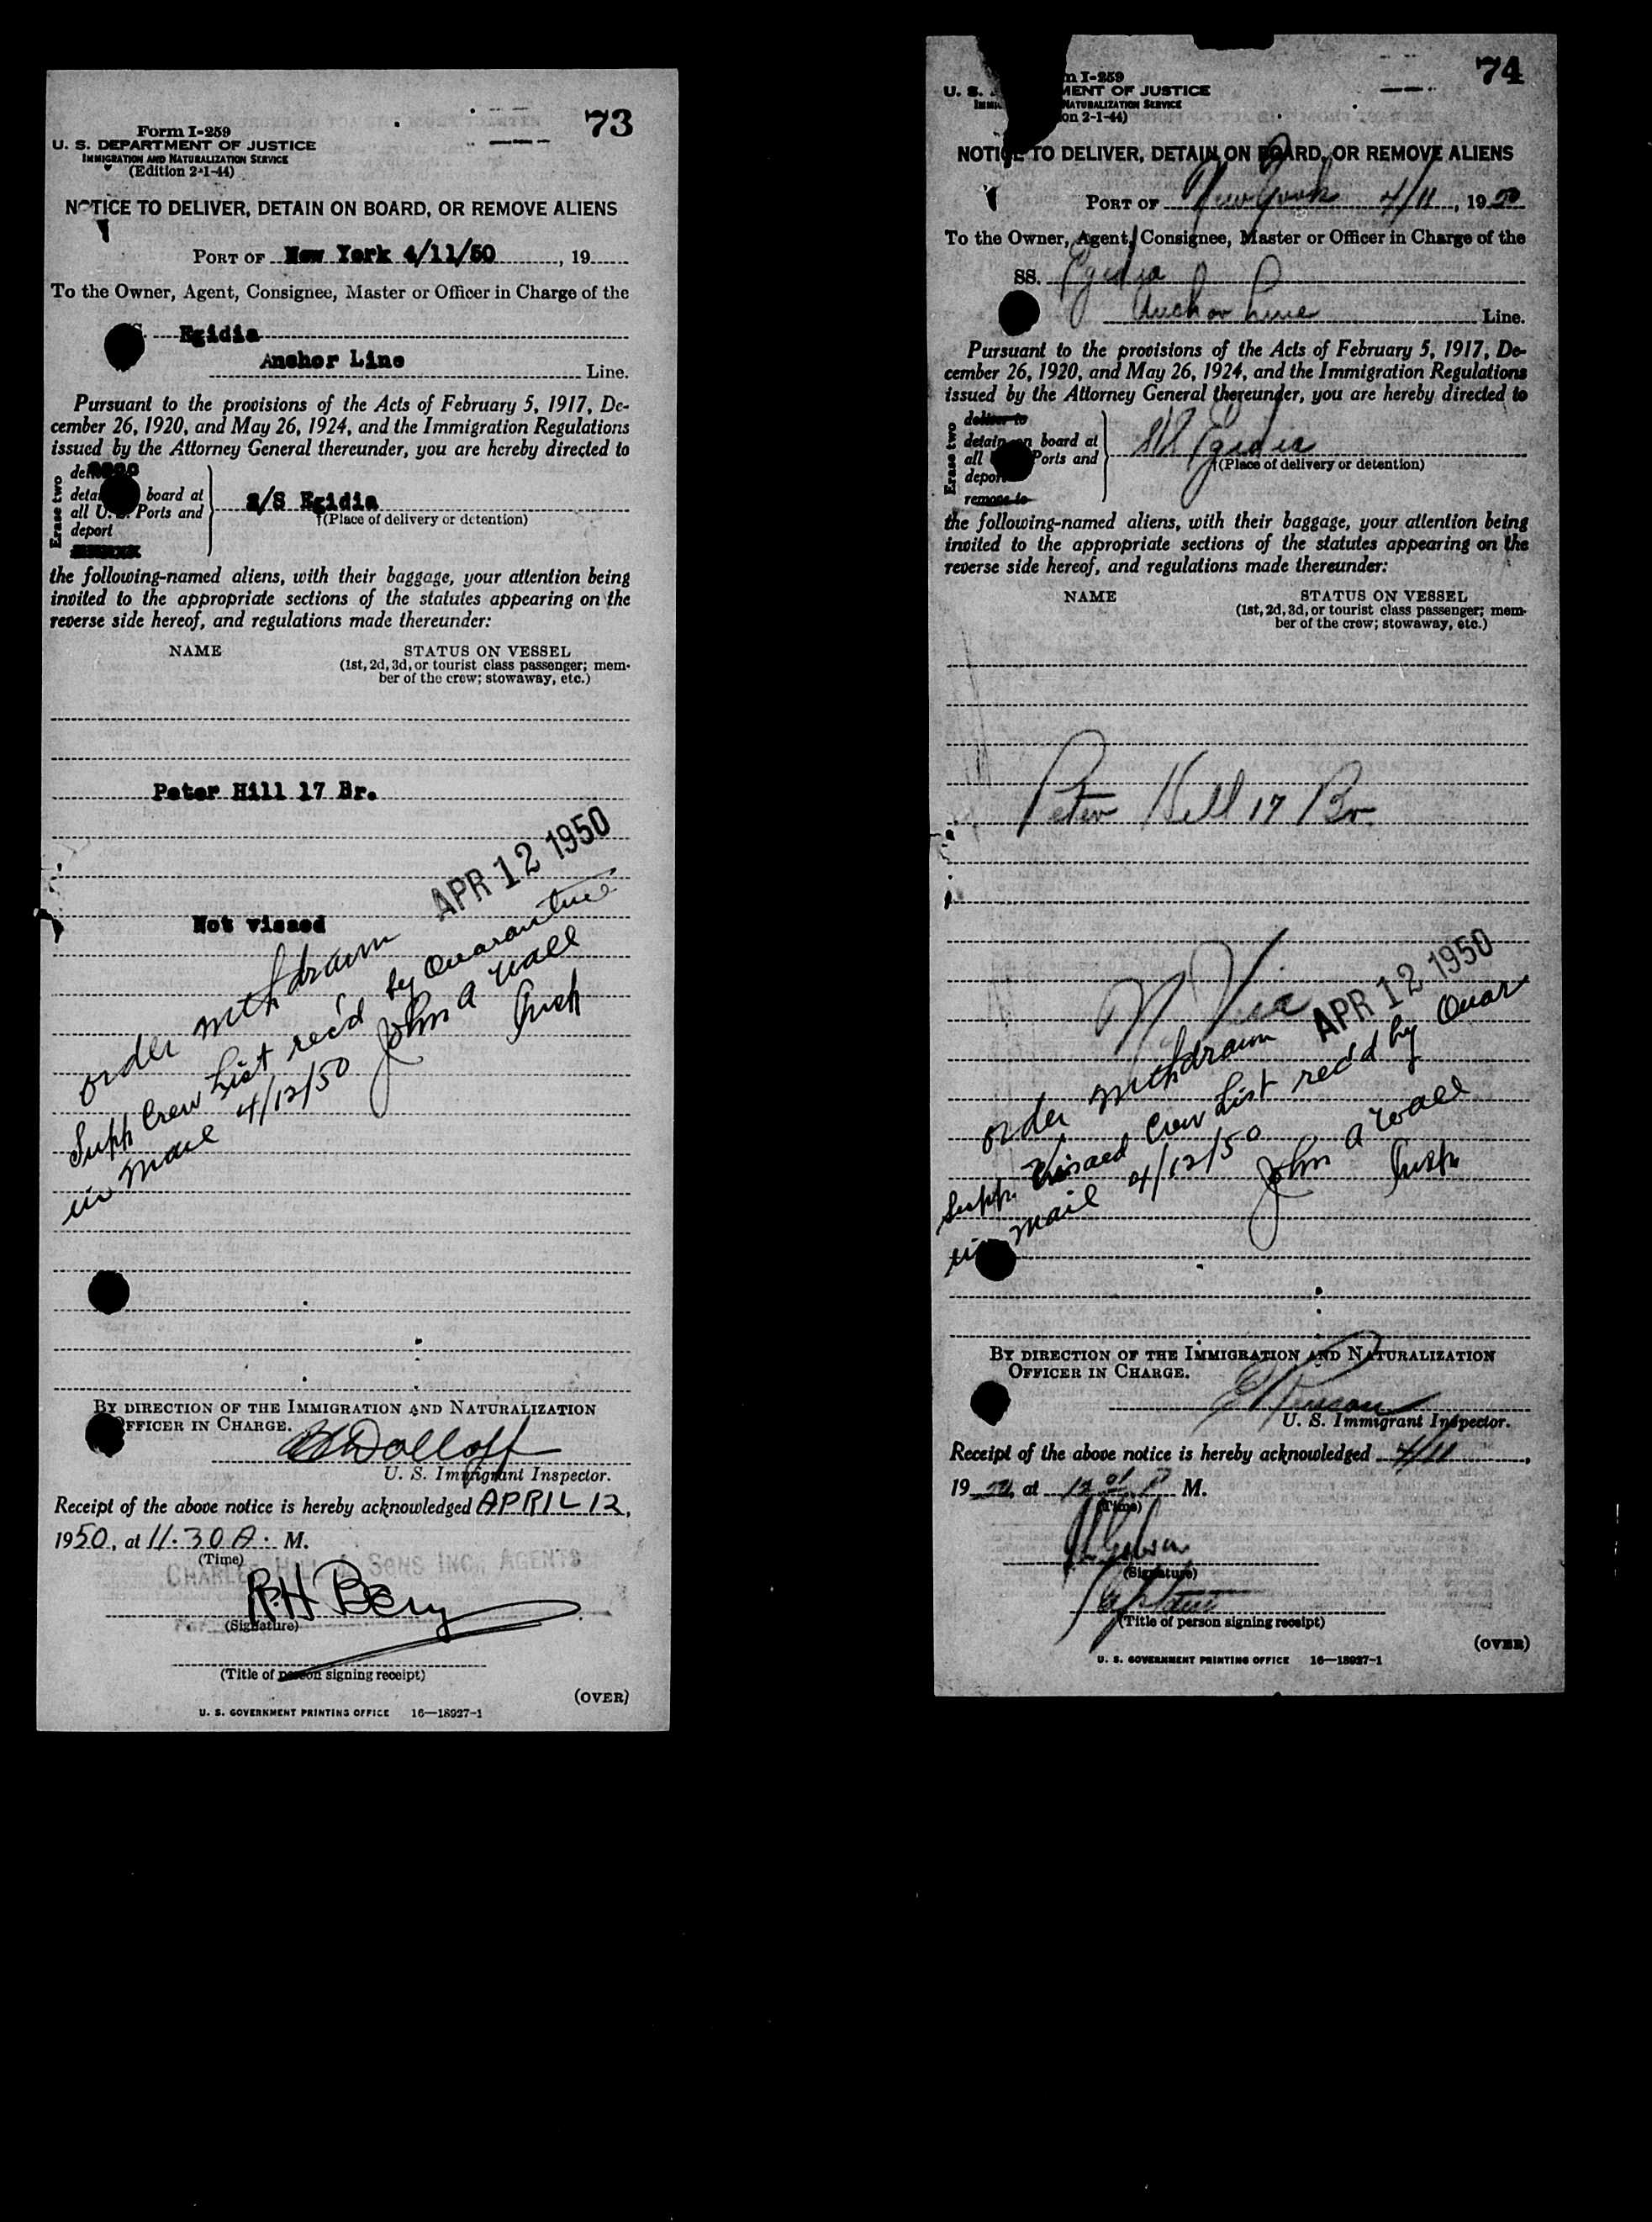 73
Form I-259
U. S. DEPARTMENT OF JUSTICE
IMMIGRATION AND NATURALIZATION SERVICE
(Edition 2-1-44)
NOTICE TO DELIVER, DETAIN ON BOARD, OR REMOVE ALIENS
PORT OF New York 4/11/50, 19
To the Owner, Agent, Consignee, Master or Officer in Charge of the
Egidia
Anchor Line Line.
Pursuant to the provisions of the Acts of February 5, 1917, De-
cember 26, 1920, and May 26, 1924, and the Immigration Regulations
issued by the Attorney General thereunder, you are hereby directed to
Erase two
board at
all U. S. Ports and
deport
S/S Egidia
†(Place of delivery or detention)
the following-named aliens, with their baggage, your attention being
invited to the appropriate sections of the statutes appearing on the
reverse side hereof, and regulations made thereunder:
NAME STATUS ON VESSEL
(1st, 2d, 3d, or tourist class passenger; mem-
ber of the crew; stowaway, etc.)
Peter Hill 17 Br.
APR 12 1950
Not visaed
order withdrawn
Supp Crew List rec'd by Quarantine
in mail 4/12/50 John A Wall
Insp
BY DIRECTION OF THE IMMIGRATION AND NATURALIZATION
OFFICER IN CHARGE.
Dolloff
U. S. Immigrant Inspector.
Receipt of the above notice is hereby acknowledged APRIL 12,
1950, at 11.30 A. M.
(Time)
CHARLES HILL & SONS INC., AGENTS
R.H Bery
(Signature)
(Title of person signing receipt)
(OVER)
U. S. GOVERNMENT PRINTING OFFICE 16—18927-1
74
Form I-259
U. S. DEPARTMENT OF JUSTICE
NATURALIZATION SERVICE
(Edition 2-1-44)
NOTICE TO DELIVER, DETAIN ON BOARD, OR REMOVE ALIENS
PORT OF New York 4/11, 1950
To the Owner, Agent, Consignee, Master or Officer in Charge of the
SS. Egidia
Anchor Line Line.
Pursuant to the provisions of the Acts of February 5, 1917, De-
cember 26, 1920, and May 26, 1924, and the Immigration Regulations
issued by the Attorney General thereunder, you are hereby directed to
Erase two
deliver to
detain on board at
all Ports and
deport
remove to
SS Egidia
†(Place of delivery or detention)
the following-named aliens, with their baggage, your attention being
invited to the appropriate sections of the statutes appearing on the
reverse side hereof, and regulations made thereunder:
NAME STATUS ON VESSEL
(1st, 2d, 3d, or tourist class passenger; mem-
ber of the crew; stowaway, etc.)
Peter Hill 17 Br.
APR 12 1950
order withdrawn
Supp. Visaed Crew List rec'd by Quar
in mail 4/12/50 John A Wall
Insp
BY DIRECTION OF THE IMMIGRATION AND NATURALIZATION
OFFICER IN CHARGE.
U. S. Immigrant Inspector.
Receipt of the above notice is hereby acknowledged 4/11,
1950, at 12 M.
(Time)
(Signature)
(Title of person signing receipt)
(OVER)
U. S. GOVERNMENT PRINTING OFFICE 16—18927-1